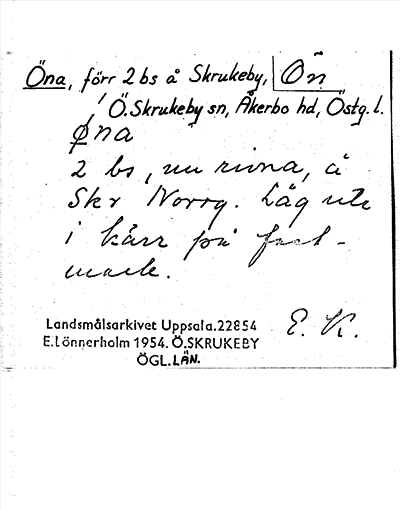 Öna, förr 2 bs å Skrukeby, Ön
Ö. Skrukeby sn, Åkerbo hd, Östg. l.
ǿna
2 bs, nu rivna, å
Skr Norrg. Låg ute
i kärr på fast-
mark.
Landsmålsarkivet Uppsala. 22854
E. Lönnerholm 1954. Ö. SKRUKEBY
ÖGL. LÄN.
E. K.